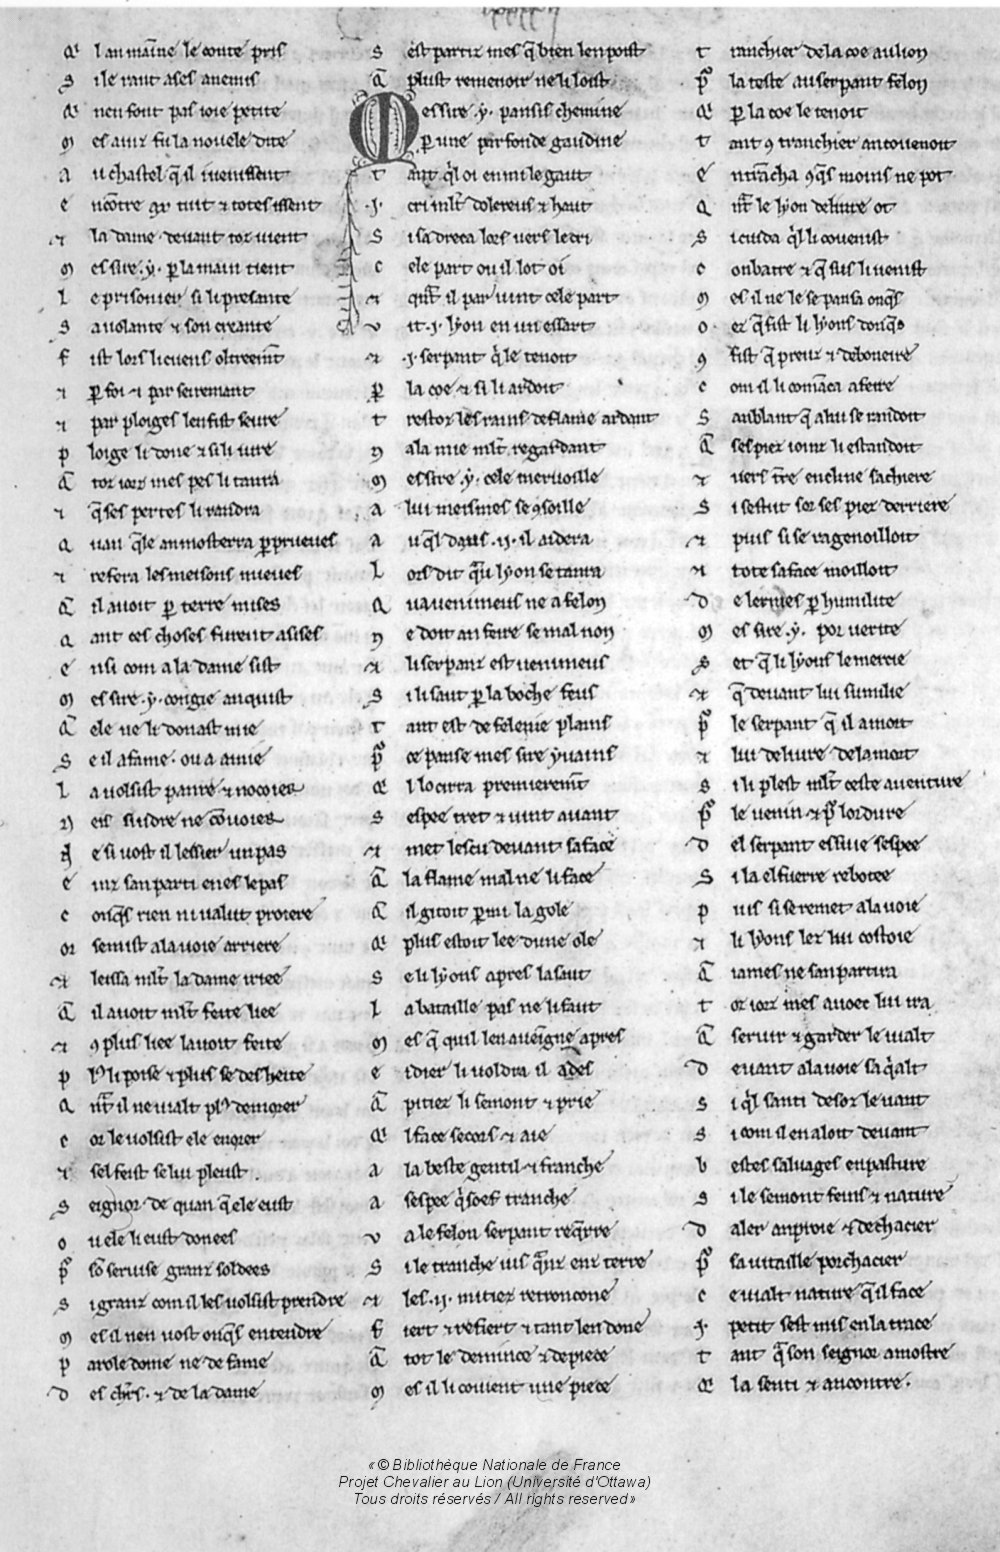 Q̃ l an maine le conte pris
S ile rant ases anemis
Q̃ nen font pas ioie petite
M es ainz fu la novele dite
A u chastel q̃ il i venissent
E ncõtre aus tuit ⁊ totes issent
⁊ la dame devant toz vient
M es sire .y. p̱ la main tient
L e prisonier si li presante
S a volante ⁊ son creante
F ist lors li cuens oltreemt̃
⁊ p̱ foi ⁊ par seiremant
⁊ par ploiges len fist seure
P loige li done ⁊ si li iure
Q̃ toz iorz mes pes li tanra
⁊ q̃ ses pertes li randra
Q uan q̃le an mosterra p̱ prueves
⁊ refera les meisons nueves
Q̃ il avoit p̱ terre mises
Q ant ces choses furent asises
E nsi com a la dame sist
M es sire .y. congie an quist
Q̃ ele ne li donast mie
S e il a fame. ou a amie
L a volsist panre ⁊ noceier
N eis siudre ne cõvoier
N e si vost il lessier un pas
E inz san parti en es le pas
C onq̃s rien ni valut proiere
Or se mist a la voie arriere
⁊ leissa ml̃t la dame iriee
Q̃ il avoit ml̃t feite liee
⁊ ꝯ plus liee lavoit feite
P lꝰ li poise ⁊ plus se desheite
Q nt̃ il ne vialt plꝰ demorer
C or le volsist ele enorer
⁊ sel feist se lui pleust
S eignor de quan q̃ ele eust
O u ele li eust donees
P̃ sõ servise granz soldees
S i granz com il les volsist prendre
M es il nen vost onq̃s entendre
P arole dome ne de fame
D es chrs̃. ⁊ de la dame
S est partiz mes q̃ bien len poist
Q̃ plus remenoir ne li loist
M essire .y. pansis chemine
P̱ une parfonde gaudine
T ant q̃l oi enmi le gaut
.I. cri ml̃t dolereus ⁊ haut
S i sadreca lors vers le cri
C ele part ou il lot oi
⁊ qnt̃ il parvint cele part
V it .i. lyon en un essart
⁊ .i. serpant q̃ le tenoit
P̱ la coe ⁊ si li ardoit
T restoz les rains de flame ardant
N ala mie ml̃t regardant
M es sire .y. cele mervoille
A lui meismes se ꝯsoille
A u q̃l daus .ii. il aidera
L ors dit q̃u lyon se tanra
Q ua venimeus ne a felon
N e doit an feire se mal non
⁊ li serpanz est venimeus
S i li saut p̱ la boche feus
T ant est de felenie plains
P̃ ce panse mes sire yvains
Q̃ l locirra premieremt̃
S espee tret ⁊ vint avant
⁊ met lescu devant sa face
Q̃ la flame mal ne li face
Q̃ il gitoit p̱mi la gole
Q̃ plus estoit lee dune ole
S e li lyons apres lasaut
L a bataille pas ne li faut
M es q̃ quil len aveigne apres
E idier li voldra il ades
Q̃ pitiez li semont ⁊ prie
Q̃ l face secors ⁊ aie
A la beste gentil ⁊ franche
A sespee q̃ soef tranche
V a le felon serpant req̃rre
S i le tranche iusq̃nz en terre
⁊ les .ii. mitiez retroncone
F iert ⁊ refiert ⁊ tant len done
Q̃ tot le demince ⁊ depiece
M es il li covient une piece
T ranchier de la coe au lion
P̃ la teste au serpant felon
Q̃ p̱ la coe le tenoit
T ant ꝯ tranchier an covenoit
E n trãcha ꝯq̃s moins ne pot
Q nt̃ le lyon delivre ot
S i cuida q̃l li covenist
C onbatre ⁊ q̃ sus li venist
M es il ne le se pansa onq̃s
O ez q̃ fist li lyons donq̃s
ꝯ fist q̃ preuz ⁊ deboneire
C om il li comãca a feire
S anblant q̃ a lui se randoit
Q̃ ses piez ioinz li estandoit
⁊ vers tr̃e encline sa chiere
S i sestut sor ses piez derriere
⁊ puis si se ragenoilloit
⁊ tote sa face moilloit
D e lermes p̱ humilite
M es sire .y. por verite
S et q̃ li lyons le mercie
⁊ q̃ devant lui sumilie
P̃ le serpant q̃ il a mort
⁊ lui delivre de la mort
S i li plest ml̃t ceste aventure
P̃ le venin ⁊ p̃ lordure
D el serpant essuie sespee
S i la el fuerre rebotee
P uis si se remet a la voie
⁊ li lyons lez lui costoie
Q̃ iames ne san partira
T oz iorz mes avoec lui ira
Q̃ servir ⁊ garder le vialt
D evant a la voie saq̃alt
S i q̃l santi desoz le vant
S i com il en aloit devant
B estes salvages en pasture
S i le semont feins ⁊ nature
D aler an proie ⁊ de chacier
P̃ sa vitaille porchacier
C e vialt nature q̃ il face
.I. petit sest mis en la trace
T ant q̃ son seignor a mostre
Q̃ la senti ⁊ ancontre.
« © Bibliothèque Nationale de France
Projet Chevalier au Lion (Université d'Ottawa)
Tous droits réservés / All rights reserved »